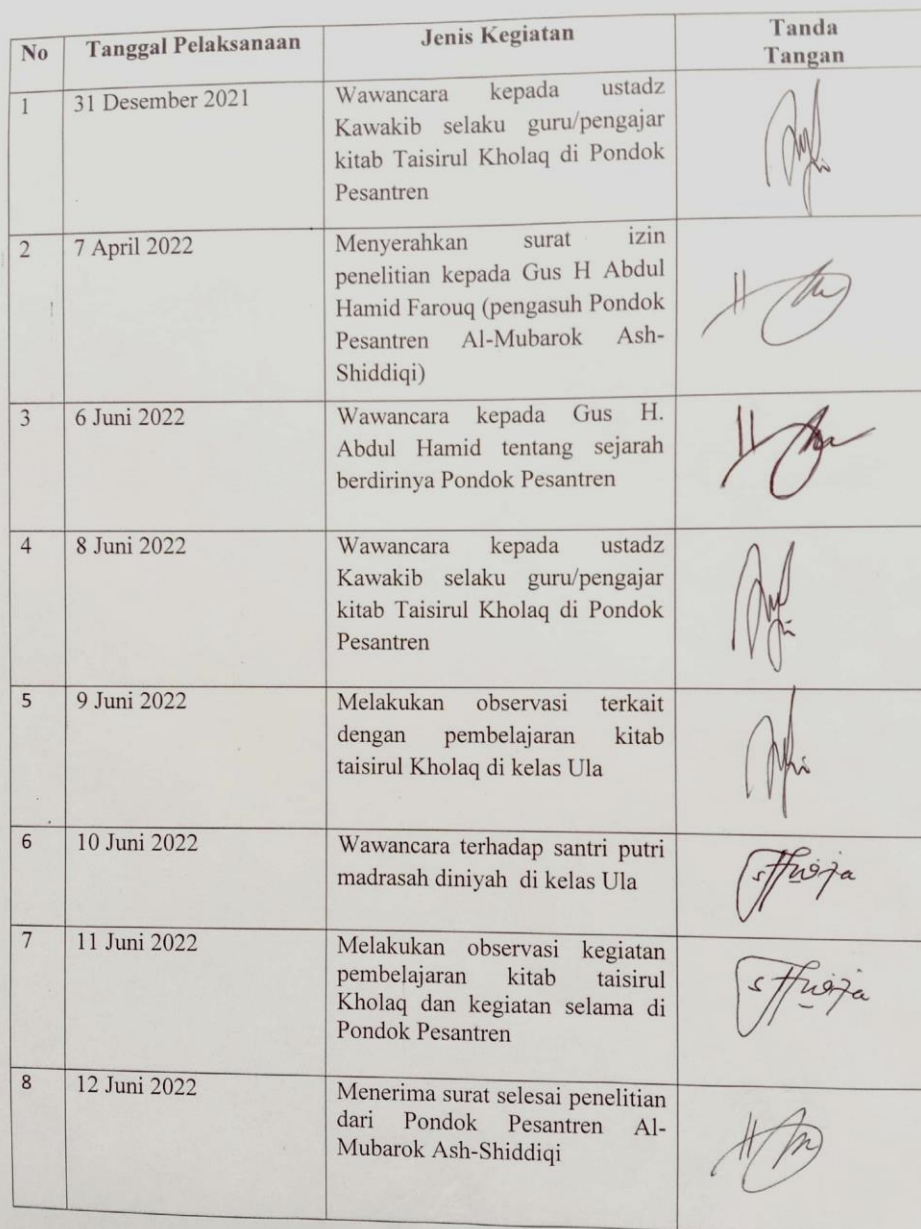 No Tanggal Pelaksanaan Jenis Kegiatan Tanda
Tangan
1 31 Desember 2021 Wawancara kepada ustadz
Kawakib selaku guru/pengajar
kitab Taisirul Kholaq di Pondok
Pesantren
2 7 April 2022 Menyerahkan surat izin
penelitian kepada Gus H Abdul
Hamid Farouq (pengasuh Pondok
Pesantren Al-Mubarok Ash-
Shiddiqi)
3 6 Juni 2022 Wawancara kepada Gus H.
Abdul Hamid tentang sejarah
berdirinya Pondok Pesantren
4 8 Juni 2022 Wawancara kepada ustadz
Kawakib selaku guru/pengajar
kitab Taisirul Kholaq di Pondok
Pesantren
5 9 Juni 2022 Melakukan observasi terkait
dengan pembelajaran kitab
taisirul Kholaq di kelas Ula
6 10 Juni 2022 Wawancara terhadap santri putri
madrasah diniyah di kelas Ula
7 11 Juni 2022 Melakukan observasi kegiatan
pembelajaran kitab taisirul
Kholaq dan kegiatan selama di
Pondok Pesantren
8 12 Juni 2022 Menerima surat selesai penelitian
dari Pondok Pesantren Al-
Mubarok Ash-Shiddiqi